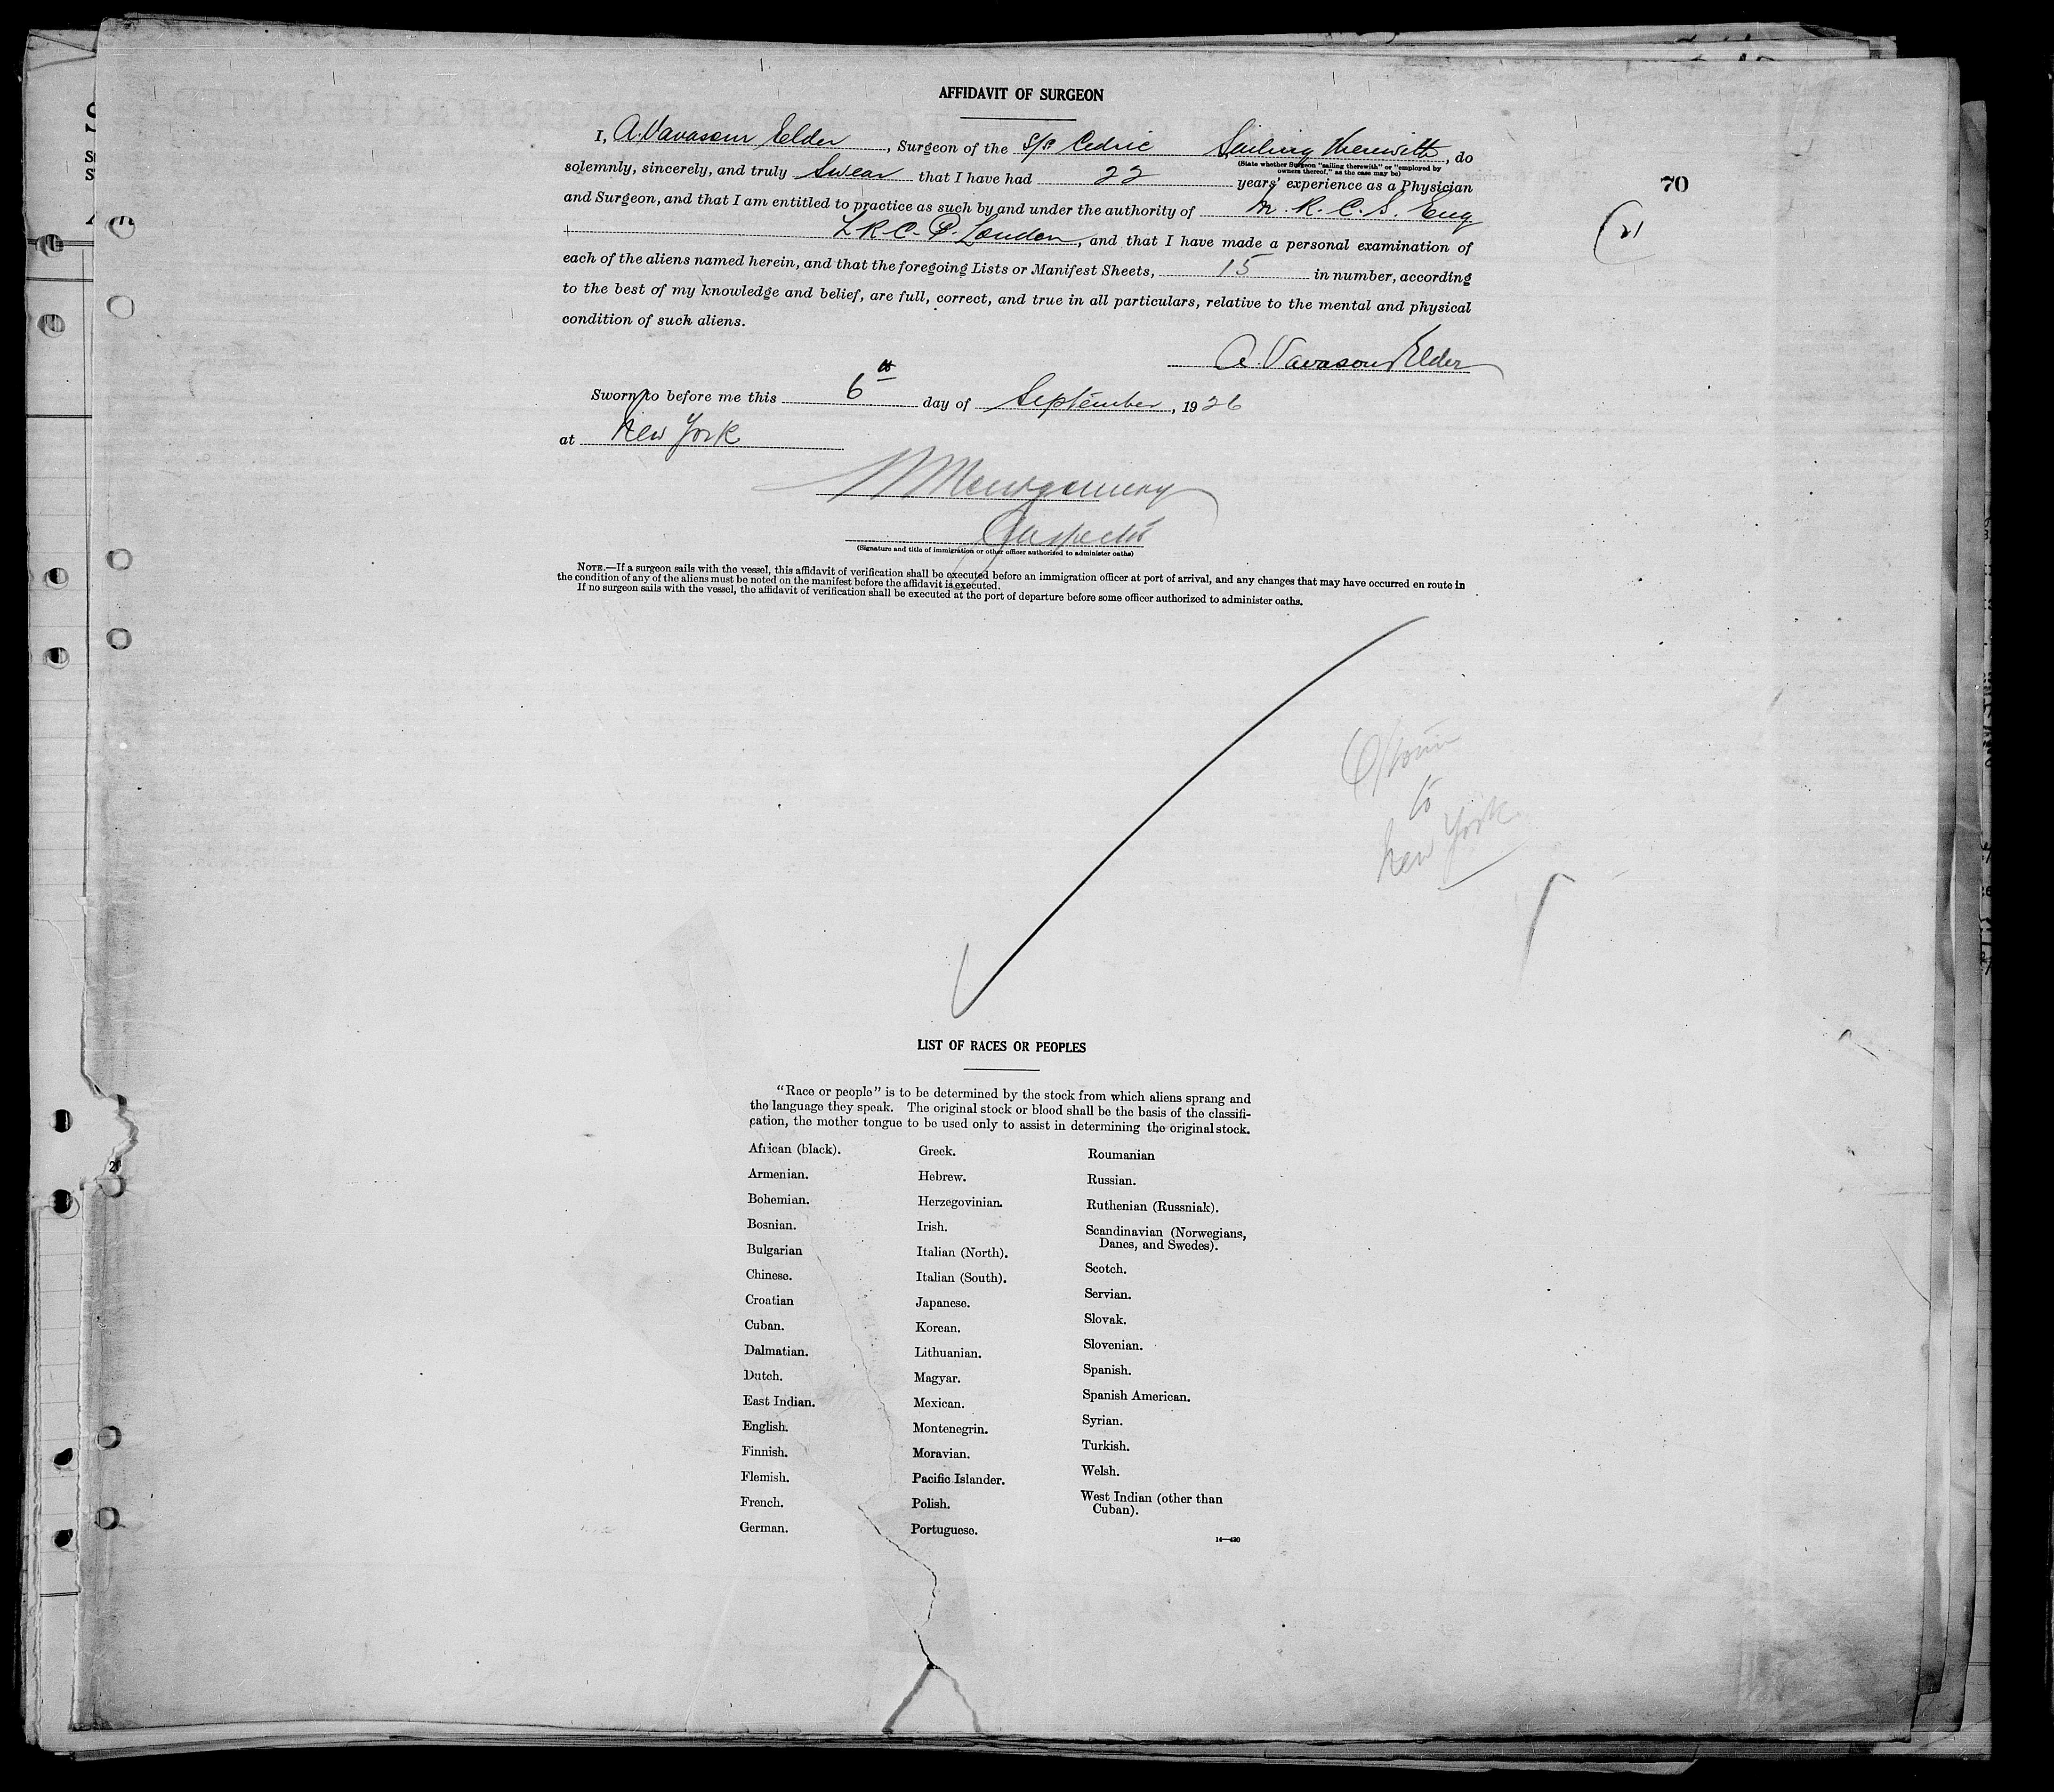 AFFIDAVIT OF SURGEON
I, A. Vavasour Elder, Surgeon of the S/S Cedric Sailing therewith, do
(State whether Surgeon "sailing therewith" or "employed by
owners thereof," as the case may be)
solemnly, sincerely, and truly Swear that I have had 22 years' experience as a Physician
and Surgeon, and that I am entitled to practice as such by and under the authority of M.R.C.S. Eng
L.R.C.P. London, and that I have made a personal examination of
each of the aliens named herein, and that the foregoing Lists or Manifest Sheets, 15 in number, according
to the best of my knowledge and belief, are full, correct, and true in all particulars, relative to the mental and physical
condition of such aliens.
70
A. Vavasour Elder
Sworn to before me this 6th day of September, 1926
at New York
Montgomery
Inspector
(Signature and title of immigration or other officer authorized to administer oaths)
NOTE.—If a surgeon sails with the vessel, this affidavit of verification shall be executed before an immigration officer at port of arrival, and any changes that may have occurred en route in
the condition of any of the aliens must be noted on the manifest before the affidavit is executed.
If no surgeon sails with the vessel, the affidavit of verification shall be executed at the port of departure before some officer authorized to administer oaths.
to
New York
LIST OF RACES OR PEOPLES
"Race or people" is to be determined by the stock from which aliens sprang and
the language they speak. The original stock or blood shall be the basis of the classifi-
cation, the mother tongue to be used only to assist in determining the original stock.
African (black).
Armenian.
Bohemian.
Bosnian.
Bulgarian
Chinese.
Croatian
Cuban.
Dalmatian.
Dutch.
East Indian.
English.
Finnish.
Flemish.
French.
German.
Greek.
Hebrew.
Herzegovinian.
Irish.
Italian (North).
Italian (South).
Japanese.
Korean.
Lithuanian.
Magyar.
Mexican.
Montenegrin.
Moravian.
Pacific Islander.
Polish.
Portuguese.
Roumanian
Russian.
Ruthenian (Russniak).
Scandinavian (Norwegians,
Danes, and Swedes).
Scotch.
Servian.
Slovak.
Slovenian.
Spanish.
Spanish American.
Syrian.
Turkish.
Welsh.
West Indian (other than
Cuban).
14—430